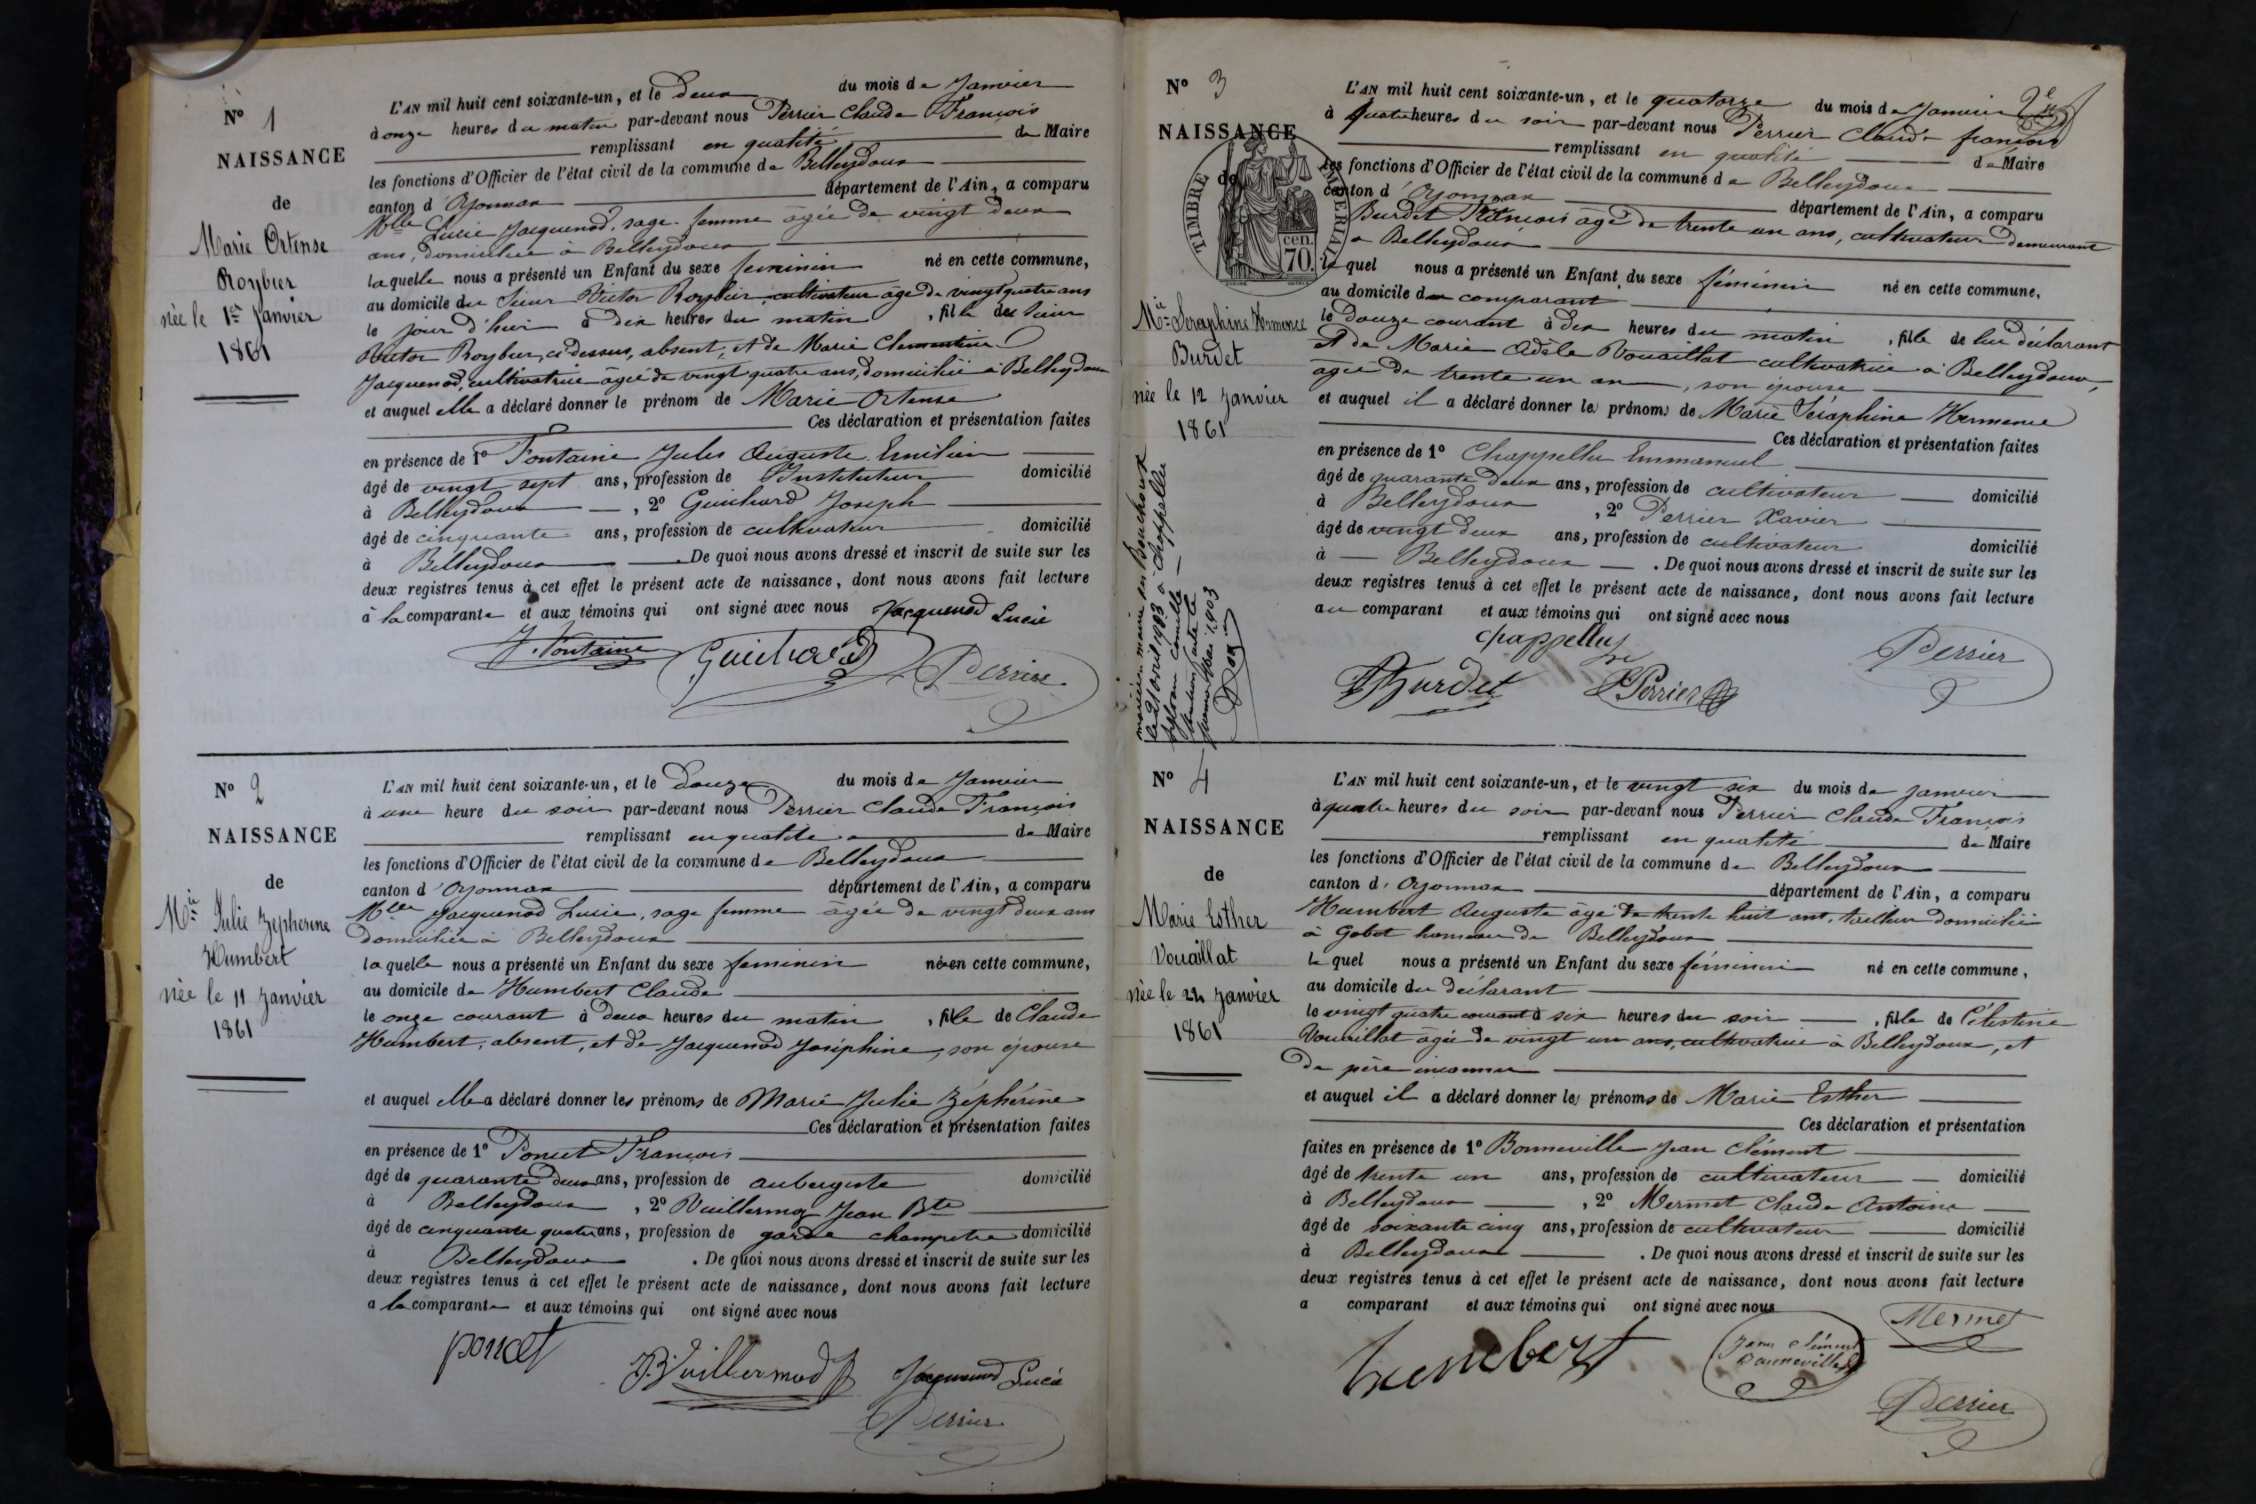 N° 1
NAISSANCE
de
Marie Ortense
Roybier
née le 1er Janvier
1861
L'AN mil huit cent soixante-un, et le deux du mois de Janvier
à onze heures du matin par-devant nous Perrier Claude François
remplissant en qualité de Maire
les fonctions d'Officier de l'état civil de la commune de Belleydoux
canton d'Oyonnax département de l'Ain, a comparu
Mlle Lucie Jacquenod, sage-femme âgée de vingt deux
ans, domiciliée à Belleydoux
laquelle nous a présenté un Enfant du sexe féminin né en cette commune,
au domicile du Sieur Victor Roybier, cultivateur âgé de vingt quatre ans
le jour d'hui à dix heures du matin, fille du Sieur
Victor Roybier, ci dessus, absent, et de Marie Clementine
Jacquenod, cultivatrice âgée de vingt quatre ans, domiciliée à Belleydoux
et auquel elle a déclaré donner le prénom de Marie Ortense
Ces déclaration et présentation faites
en présence de 1° Fontaine Jules Auguste Emilien
âgé de vingt sept ans, profession de Instituteur domicilié
à Belleydoux, 2° Guichard Joseph
âgé de cinquante ans, profession de cultivateur domicilié
à Belleydoux. De quoi nous avons dressé et inscrit de suite sur les
deux registres tenus à cet effet le présent acte de naissance, dont nous avons fait lecture
à la comparante et aux témoins qui ont signé avec nous Jacquenod Lucie
J. Fontaine Guichard Perrier
N° 2
NAISSANCE
de
Mie Julie Zepherine
Humbert
née le 11 Janvier
1861
L'AN mil huit cent soixante-un, et le douze du mois de Janvier
à une heure du soir par-devant nous Perrier Claude François
remplissant en qualité de Maire
les fonctions d'Officier de l'état civil de la commune de Belleydoux
canton d'Oyonnax département de l'Ain, a comparu
Mlle Jacquenod Lucie, sage femme âgée de vingt deux ans
domiciliée à Belleydoux
laquelle nous a présenté un Enfant du sexe féminin né en cette commune,
au domicile de Humbert Claude
le onze courant à deux heures du matin, fille de Claude
Humbert, absent, et de Jacquenod Joséphine, son épouse
et auquel elle a déclaré donner les prénoms de Marie Julie Zéphérine
Ces déclaration et présentation faites
en présence de 1° Poncet François
âgé de quarante deux ans, profession de aubergiste domicilié
à Belleydoux, 2° Vuillermoz Jean Bte
âgé de cinquante quatre ans, profession de garde champetre domicilié
à Belleydoux. De quoi nous avons dressé et inscrit de suite sur les
deux registres tenus à cet effet le présent acte de naissance, dont nous avons fait lecture
a la comparante et aux témoins qui ont signé avec nous
poncet
JBVuillermod Jacquenod Lucie
Perrier
N° 3
NAISSANCE
de
TIMBRE IMPERIAL
70 cen.
Mie Seraphine Hermence
Burdet
née le 12 Janvier
1861
le 21 avril 1903 à Chappelle
L'AN mil huit cent soixante-un, et le quatorze du mois de Janvier
à quatre heures du soir par-devant nous Perrier Claude françois
remplissant en qualité de Maire
les fonctions d'Officier de l'état civil de la commune de Belleydoux
canton d'Oyonnax département de l'Ain, a comparu
Burdet François âgé de trente un ans, cultivateur demeurant
a Belleydoux
lequel nous a présenté un Enfant du sexe féminin né en cette commune,
au domicile du comparant
le douze courant à dix heures du matin, fille de lui déclarant
et de Marie Adèle Vouaillat cultivatrice à Belleydoux,
agée de trente un an, son épouse
et auquel il a déclaré donner les prénoms de Marie Séraphine Hermence
Ces déclaration et présentation faites
en présence de 1° Chappellu Emmanuel
âgé de quarante deux ans, profession de cultivateur domicilié
à Belleydoux, 2° Perrier Xavier
âgé de vingt deux ans, profession de cultivateur domicilié
à Belleydoux. De quoi nous avons dressé et inscrit de suite sur les
deux registres tenus à cet effet le présent acte de naissance, dont nous avons fait lecture
au comparant et aux témoins qui ont signé avec nous
Chappellu
Burdet Perrier Perrier
N° 4
NAISSANCE
de
Marie Esther
Vouaillat
née le 24 Janvier
1861
L'AN mil huit cent soixante-un, et le vingt six du mois de janvier
à quatre heures du soir par-devant nous Perrier Claude François
remplissant en qualité de Maire
les fonctions d'Officier de l'état civil de la commune de Belleydoux
canton d'Oyonnax département de l'Ain, a comparu
Humbert Auguste âgé de trente huit ans, domicilié
à Gobet hameau de Belleydoux
lequel nous a présenté un Enfant du sexe féminin né en cette commune,
au domicile du déclarant
le vingt quatre courant à six heures du soir, fille de Célestine
Vouaillat agée de vingt un ans, cultivatrice à Belleydoux, et
de père inconnu
et auquel il a déclaré donner les prénoms de Marie Esther
Ces déclaration et présentation
faites en présence de 1° Bonneville Jean Clément
âgé de trente un ans, profession de cultivateur domicilié
à Belleydoux, 2° Mermet Claude Antoine
âgé de soixante cinq ans, profession de cultivateur domicilié
à Belleydoux. De quoi nous avons dressé et inscrit de suite sur les
deux registres tenus à cet effet le présent acte de naissance, dont nous avons fait lecture
a comparant et aux témoins qui ont signé avec nous
Mermet
humbert Jean Clément
Bonneville
Perrier